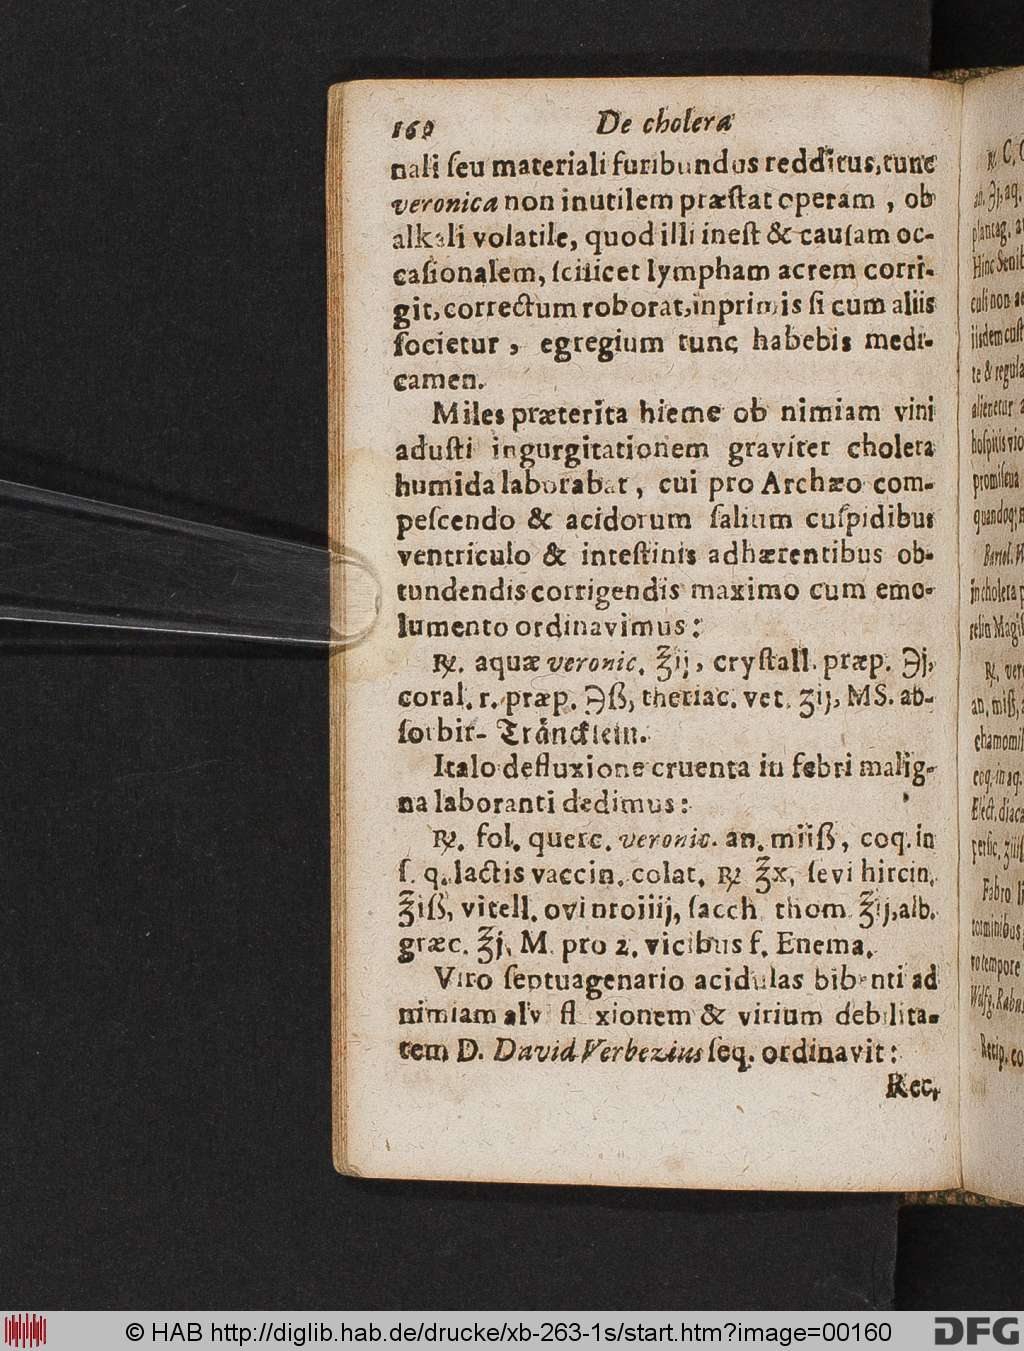 160 De cholera
nali ſeu materiali furibundus redditus, tunc
veronica non inutilem præſtat operam, ob
alkali volatile, quod illi ineſt & cauſam oc-
caſionalem, ſcilicet lympham acrem corri-
git, correctum roborat, inprimis ſi cum aliis
ſocietur, egregium tunc habebis medi-
camen.
Miles præterita hieme ob nimiam vini
aduſti ingurgitationem graviter cholera
humida laborabat, cui pro Archæo com-
peſcendo & acidorum ſalium cuſpidibus
ventriculo & inteſtinis adhærentibus ob-
tundendis corrigendis maximo cum emo-
lumento ordinavimus:
℞. aquæ veronic. ℥ij, cryſtall. præp. ℈j,
coral. r. præp. ℈ß, theriac. vet. ʒij, MS. ab-
ſorbir- Träncklein.
Italo defluxione cruenta in febri malig-
na laboranti dedimus:
℞. fol. querc. veronic. an. miiß, coq. in
ſ. q. lactis vaccin. colat. ℞ ℥x, ſevi hircin.
℥iß, vitell. ovi nroiiij, ſacch thom. ℥ij, alb.
græc. ℥j, M. pro 2. vicibus f. Enema.
Viro ſeptuagenario acidulas bibenti ad
nimiam alv fl xionem & virium debilita-
tem D. David Verbezius ſeq. ordinavit:
Rec.
℞. C. C
an. ℈j, aq.
plantag. a
Hinc Senib
culi non a
iisdem cuſt
te & regula
alienetur a
hoſpitis vio
promiſcua
quandoq;
Bartol. 
in cholera p
retin Magiſ
℞. ver
an. miß,
chamomil
coq. in aq.
Elect. diaca
perſic. ʒiiſ
Fabro li
torminibus
vo tempore
Wolfg. Rabus
Recip. co
© HAB http://diglib.hab.de/drucke/xb-263-1s/start.htm?image=00160
DFG